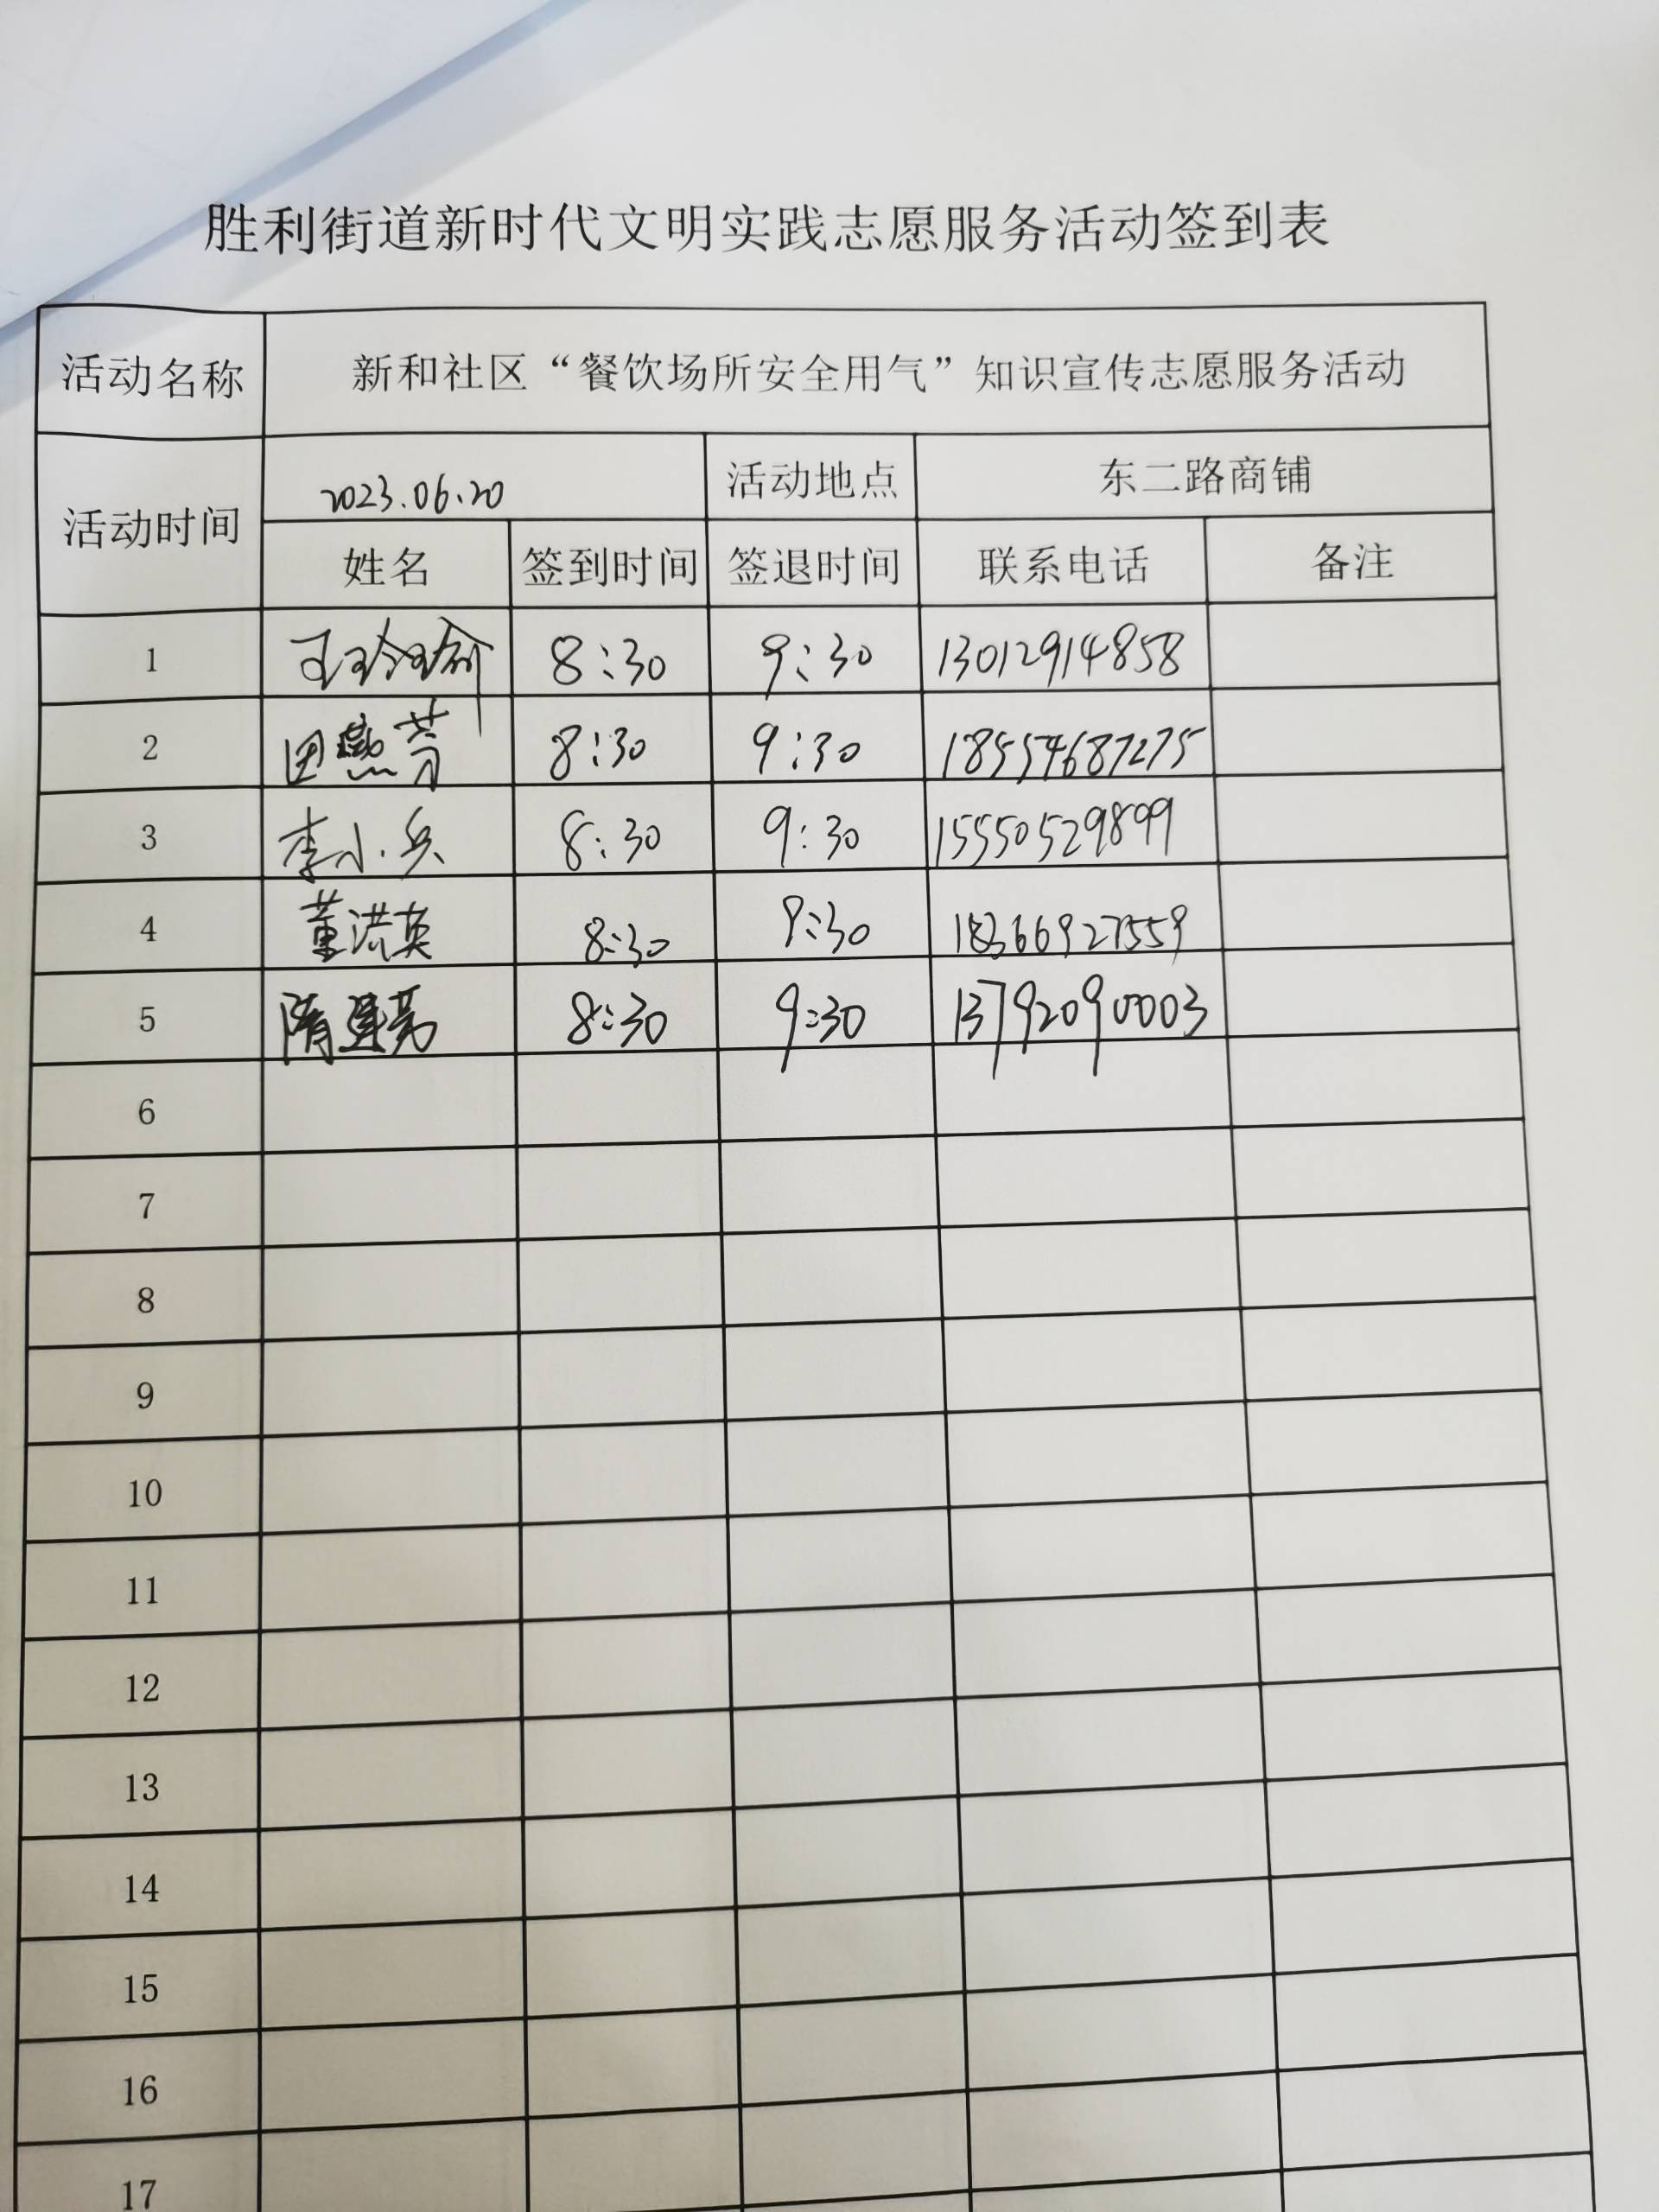 胜利街道新时代文明实践志愿服务活动签到表
活动名称 新和社区“餐饮场所安全用气”知识宣传志愿服务活动
活动时间 2023.06.20 活动地点 东二路商铺
姓名 签到时间 签退时间 联系电话 备注
1 王玲瑜 8:30 9:30 13012914858
2 田燕芳 8:30 9:30 18554687275
3 李小兵 8:30 9:30 15550529899
4 董洪英 8:30 9:30 18366927559
5 隋建亮 8:30 9:30 13792090003
6
7
8
9
10
11
12
13
14
15
16
17